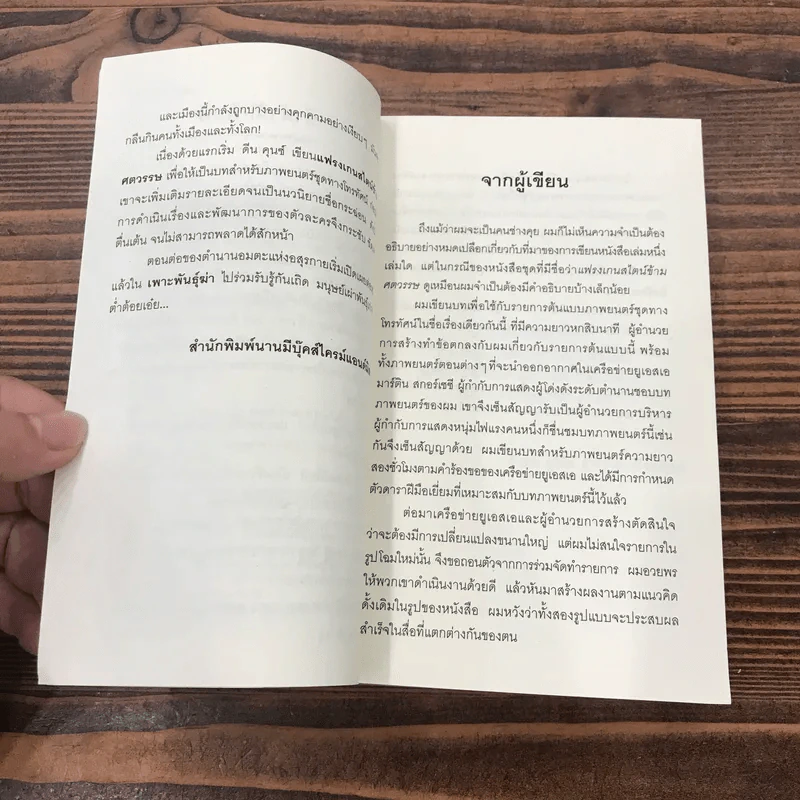 และเมืองนี้กำลังถูกบางอย่างคุกคามอย่างเงียบๆ
กลืนกินคนทั้งเมืองและทั้งโลก!
เนื่องด้วยแรกเริ่ม ดีน คุนซ์ เขียนแฟรงเกนสไตน์
ศตวรรษ เพื่อให้เป็นบทสำหรับภาพยนตร์ชุดทางโทรทัศน์
เขาจะเพิ่มเติมรายละเอียดจนเป็นนวนิยายชื่อกระฉ่อน
การดำเนินเรื่องและพัฒนาการของตัวละครจึงกระชับ
ตื่นเต้น จนไม่สามารถพลาดได้สักหน้า
ตอนต่อของตำนานอมตะแห่งอสุรกายเริ่มเปิดเผย
แล้วใน เพาะพันธุ์ฆ่า ไปร่วมรับรู้กันเถิด มนุษย์เผ่าพันธุ์
ต่ำต้อยเอ๋ย...
สำนักพิมพ์นานมีบุ๊คส์ไครม์แอนด์
จากผู้เขียน
ถึงแม้ว่าผมจะเป็นคนช่างคุย ผมก็ไม่เห็นความจำเป็นต้อง
อธิบายอย่างหมดเปลือกเกี่ยวกับที่มาของการเขียนหนังสือเล่มหนึ่ง
เล่มใด แต่ในกรณีของหนังสือชุดที่มีชื่อว่าแฟรงเกนสไตน์ข้าม
ศตวรรษ ดูเหมือนผมจำเป็นต้องมีคำอธิบายบ้างเล็กน้อย
ผมเขียนบทเพื่อใช้กับรายการต้นแบบภาพยนตร์ชุดทาง
โทรทัศน์ในชื่อเรื่องเดียวกันนี้ ที่มีความยาวหกสิบนาที ผู้อำนวย
การสร้างทำข้อตกลงกับผมเกี่ยวกับรายการต้นแบบนี้ พร้อม
ทั้งภาพยนตร์ตอนต่างๆ ที่จะนำออกอากาศในเครือข่ายยูเอสเอ
มาร์ติน สกอร์เซซี ผู้กำกับการแสดงผู้โด่งดังระดับตำนานชอบบท
ภาพยนตร์ของผม เขาจึงเซ็นสัญญารับเป็นผู้อำนวยการบริหาร
ผู้กำกับการแสดงหนุ่มไฟแรงคนหนึ่งก็ชื่นชมบทภาพยนตร์นี้เช่น
กันจึงเซ็นสัญญาด้วย ผมเขียนบทสำหรับภาพยนตร์ความยาว
สองชั่วโมงตามคำร้องขอของเครือข่ายยูเอสเอ และได้มีการกำหนด
ตัวดาราฝีมือเยี่ยมที่เหมาะสมกับบทภาพยนตร์นี้ไว้แล้ว
ต่อมาเครือข่ายยูเอสเอและผู้อำนวยการสร้างตัดสินใจ
ว่าจะต้องมีการเปลี่ยนแปลงขนานใหญ่ แต่ผมไม่สนใจรายการใน
รูปโฉมใหม่นั้น จึงขอถอนตัวจากการร่วมจัดทำรายการ ผมอวยพร
ให้พวกเขาดำเนินงานด้วยดี แล้วหันมาสร้างผลงานตามแนวคิด
ดั้งเดิมในรูปของหนังสือ ผมหวังว่าทั้งสองรูปแบบจะประสบผล
สำเร็จในสื่อที่แตกต่างกันของตน